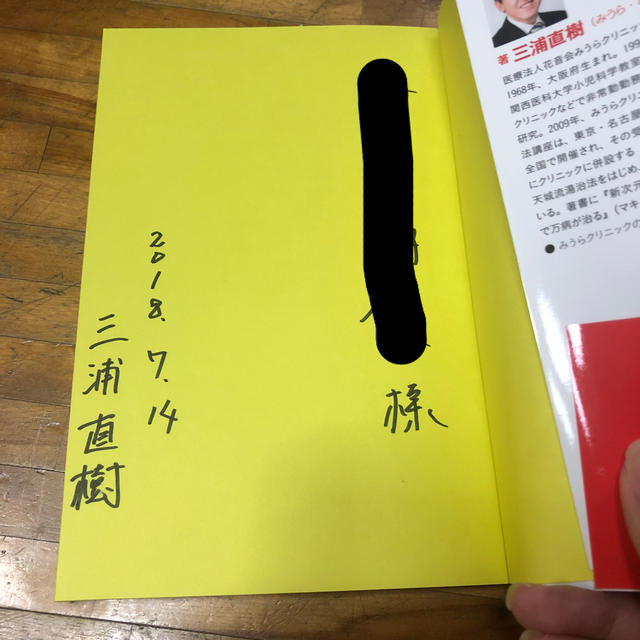 様
2018.7.14
三浦直樹
著 三浦直樹 (みうら・
医療法人花音会みうらクリニッ
1968年、大阪府生まれ。199
関西医科大学小児科学教室
クリニックなどで非常勤勤
研究。2009年、みうらクリニ
法講座は、東京・名古屋
全国で開催され、その
にクリニックに併設する
天城流湯治法をはじめ、
いる。著書に『新次元
で万病が治る』(マキ
●みうらクリニックの